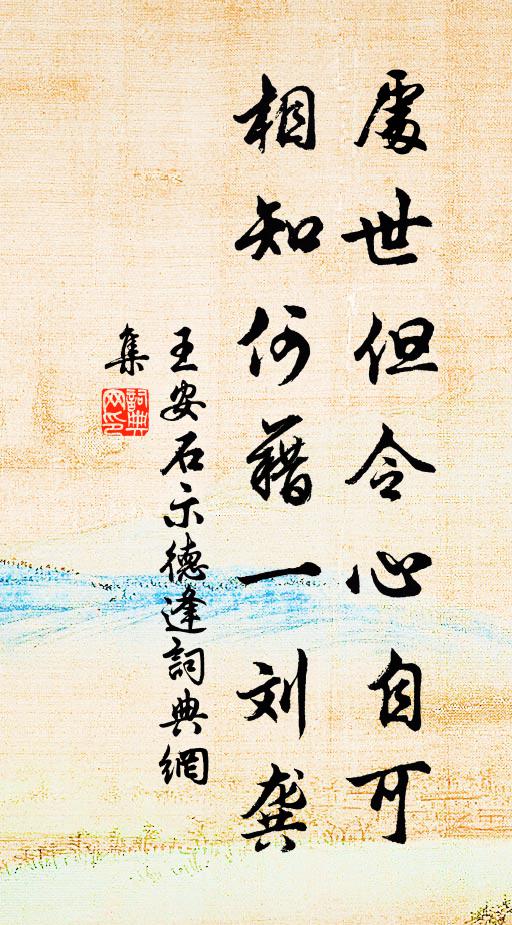 處世但令心自可
相知何藉一刘龚
王安石示德逢詞典網
集
詞典
网印